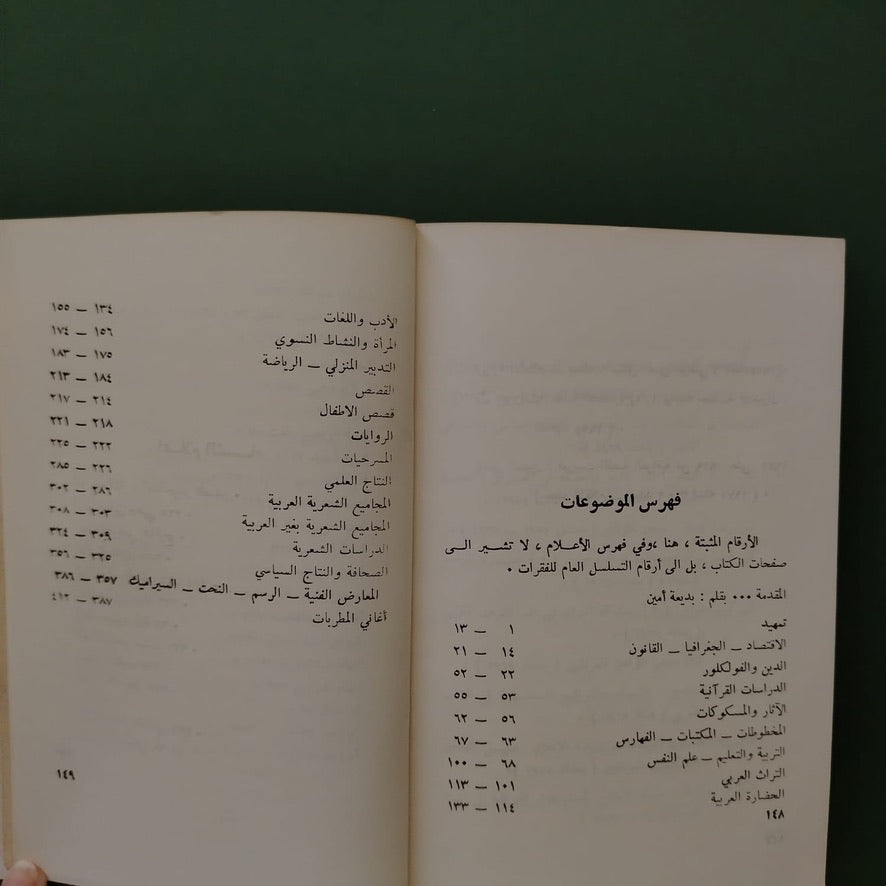 فهرس الموضوعات
الأرقام المثبتة ، هنا ،وفي فهرس الأعـلام ، لا تشـير الـى
صفحات الكتاب ، بل الى أرقام التسلسل العام للفقرات .
المقدمة ... بقلم : بديعة أمين
تمهيد ١ ــ ١٣
الاقتصاد ــ الجغرافيا ــ القانون ١٤ ــ ٢١
الدين والفولكلور ٢٢ ــ ٥٢
الدراسات القرآنية ٥٣ ــ ٥٥
الآثار والمسكوكات ٥٦ ــ ٦٢
المخطوطات ــ المكتبات ــ الفهارس ٦٣ ــ ٦٧
التربية والتعليم ــ علم النفس ٦٨ ــ ١٠٠
التراث العربي ١٠١ ــ ١١٣
الحضارة العربية ١١٤ ــ ١٣٣
١٤٨
الأدب واللغات ١٣٤ ــ ١٥٥
المرأة والنشاط النسوي ١٥٦ ــ ١٧٤
التدبير المنزلي ــ الرياضة ١٧٥ ــ ١٨٣
القصص ١٨٤ ــ ٢١٣
قصص الاطفال ٢١٤ ــ ٢١٧
الروايات ٢١٨ ــ ٢٢١
المسرحيات ٢٢٢ ــ ٢٢٥
النتاج العلمي ٢٢٦ ــ ٢٨٥
المجاميع الشعرية العربية ٢٨٦ ــ ٣٠٢
المجاميع الشعرية بغير العربية ٣٠٣ ــ ٣٠٨
الدراسات الشعرية ٣٠٩ ــ ٣٢٤
الصحافة والنتاج السياسي ٣٢٥ ــ ٣٥٦
المعارض الفنية ــ الرسم ــ النحت ــ السيراميك ٣٥٧ ــ ٣٨٦
أغاني المطربات ٣٨٧ ــ ٤١٢
١٤٩